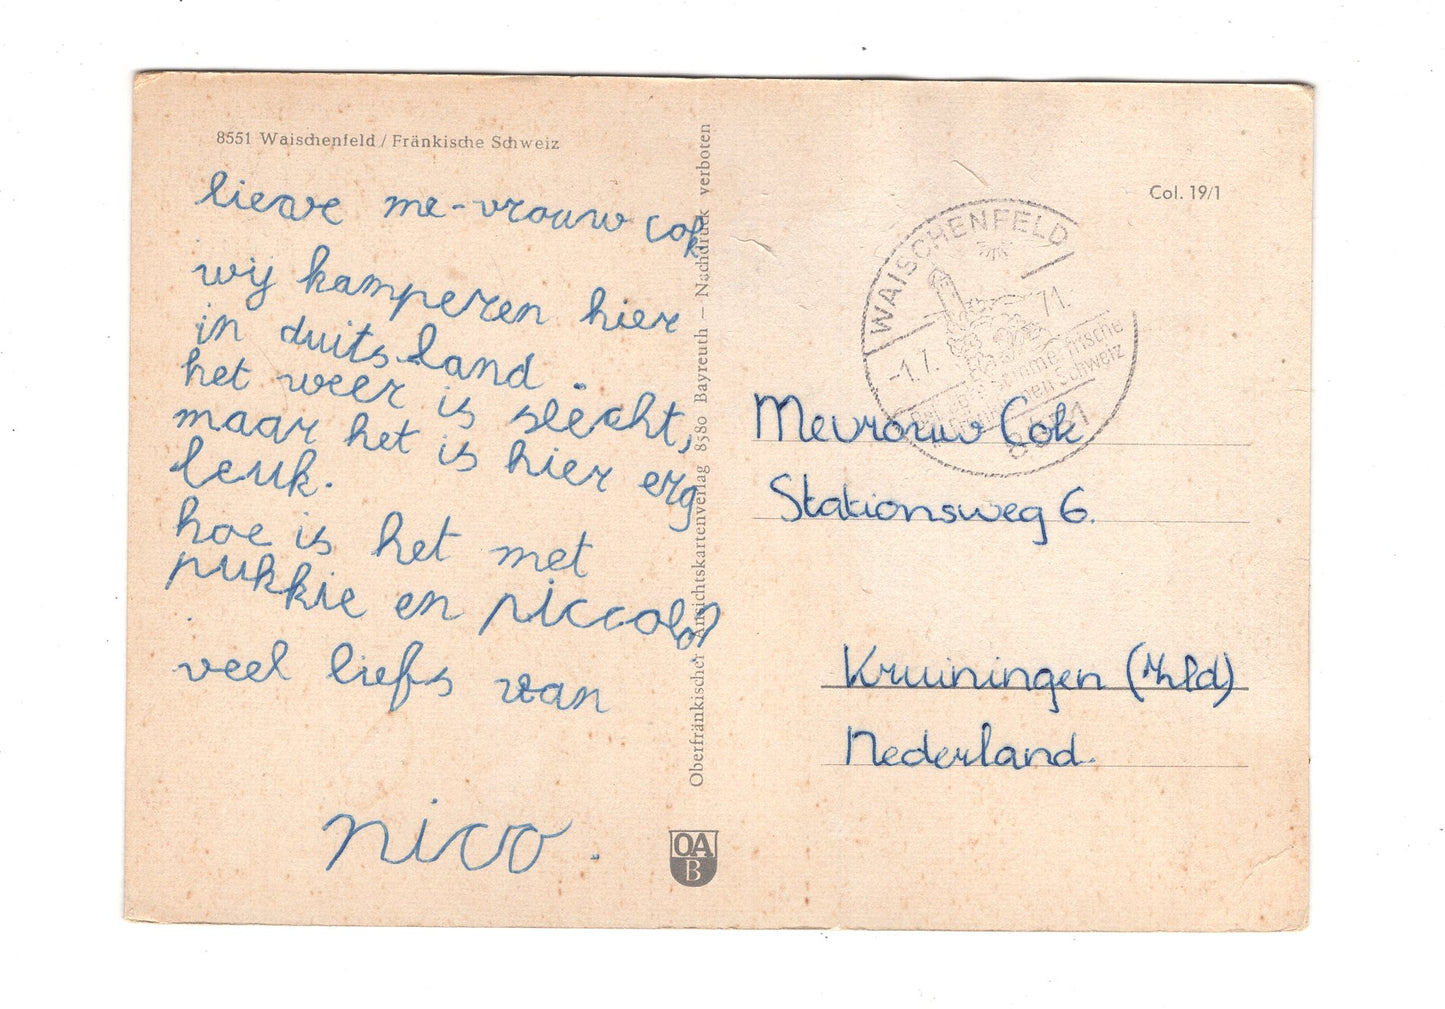 8551 Waischenfeld / Fränkische Schweiz
lieve me-vrouw Cok
wij kamperen hier
in duits land.
het weer is slecht,
maar het is hier erg
leuk.
hoe is het met
pukkie en piccolo?
veel liefs van
nico.
Oberfränkischer Ansichtskartenverlag 8580 Bayreuth — Nachdruck verboten
OA
B
Col. 19/1
WAISCHENFELD
-1.7. 71.
Sommerfrische
Schweiz
8551
Mevrouw Cok
Stationsweg 6.
Kruiningen (Zld)
Nederland.